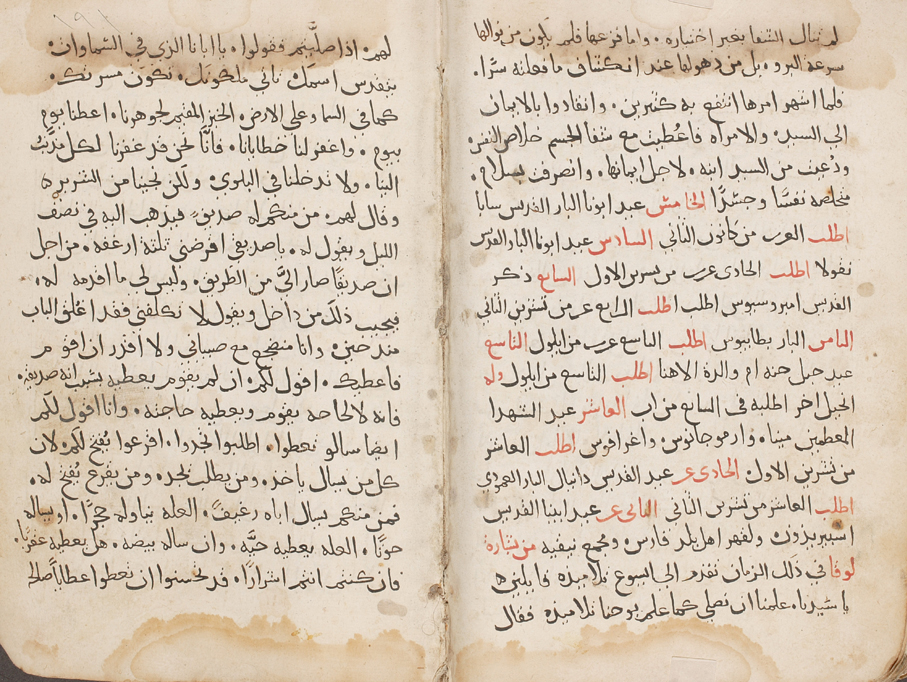 لم تنال الشفا بغير اختياره. واما فزعها فلم يكون من نوالها
سرعة البروه بل من دهولها عند انكشاف ما فعلته سرًا.
فلما اشهر امرها انتفع به كثيرين. وانقادوا بالايمان
الي السيد. والامراه فاعُطيت مع شفا الجسم خلاص النفس
ودُعيت من السيد ابنه. لاجل ايمانها. وانصرفت بسلام.
متخلصه نفسًا وجسدًا الخامس عيد ابونا البار القديس سابا
اطلب العرب من كانون الثاني السادس عيد ابونا البار القديس
نقولا اطلب الحادي عرب من تسرين الاول السابع ذكر
القديس امبروسيوس اطلب اطلب الرابع عر من تشرين الثاني
الثامن البار بطابيوس اطلب التاسع عرب من ايلول التاسع
عيد حبل حنه ام والدة الالاهنا اطلب التاسع من ايلول وله
انجيل اخر اطلبه في السابع من اب العاشر عيد الشهدا
المعظمين مينا. وارموجانوس. واغرافوس اطلب العاشر
من تشرين الاول الحادي عر عيد القديس دانيال البار العمودي
اطلب العاشر من تشرين الثاني الثاني عر عيد ابينا القديس
اسبيريدون ولقهر اهل بلد فارس ومجمع نيقيه من بشارة
لوقا في ذلك الزمان تقدم الي ايسوع تلاميذه قايلين ه
يا سيدنا. علمنا ان نصلي كما علم يوحنا تلاميذه فقال
لهم. اذا صليتم فقولوا. يا ابانا الذي في السماوات.
يتقدس اسمك تاتي ملكوتك. تكون مسرتك.
كما في السما وعلي الارض. الخبز المقيم لجوهرنا. اعطنا يوم
بيوم. واغفر لنا خطايانا. فانَّا نحن قد غفرنا لكل مذنبٌ
الينا. ولا تدخلنا في البلوي. ولكن نجينا من الشرير ه
وقال لهم. من منكم له صديق فيذهب اليه في نصف
الليل ويقول له. يا صديقي اقرضني تلتة ارغفه. من اجل
ان صديقًا صار اليَّ من الطريق. وليس لي ما اقدمه له.
فيجيب ذلك من داخل ويقول لا تكلفني فقد اغُلق الباب
منذ حين. وانا منضجع مع صبياني ولا اقدر ان اقوم
فاعطيك. اقول لكم. ان لم يقوم يعطيه بسبب انه صديقه.
فانه لالحاحه يقوم ويعطيه حاجته. وانا اقول لكم
ايضا سالو تعطوا. اطلبوا تجدوا. اقرعوا يُفتح لكم. لان
كل من يسال ياخد. ومن يطلب يجد. ومن يقرع يُفتح له.
فمن منكم يسال اباه رغيفً. العله يناوله حجرًا. او يساله
حوتًا. العله يعطيه حيَّه. وان ساله بيضه. هل يعطيه عقربًا.
فان كنتم انتم اشرارًا. قد تحسنوا ان تعطوا عطايا صالح